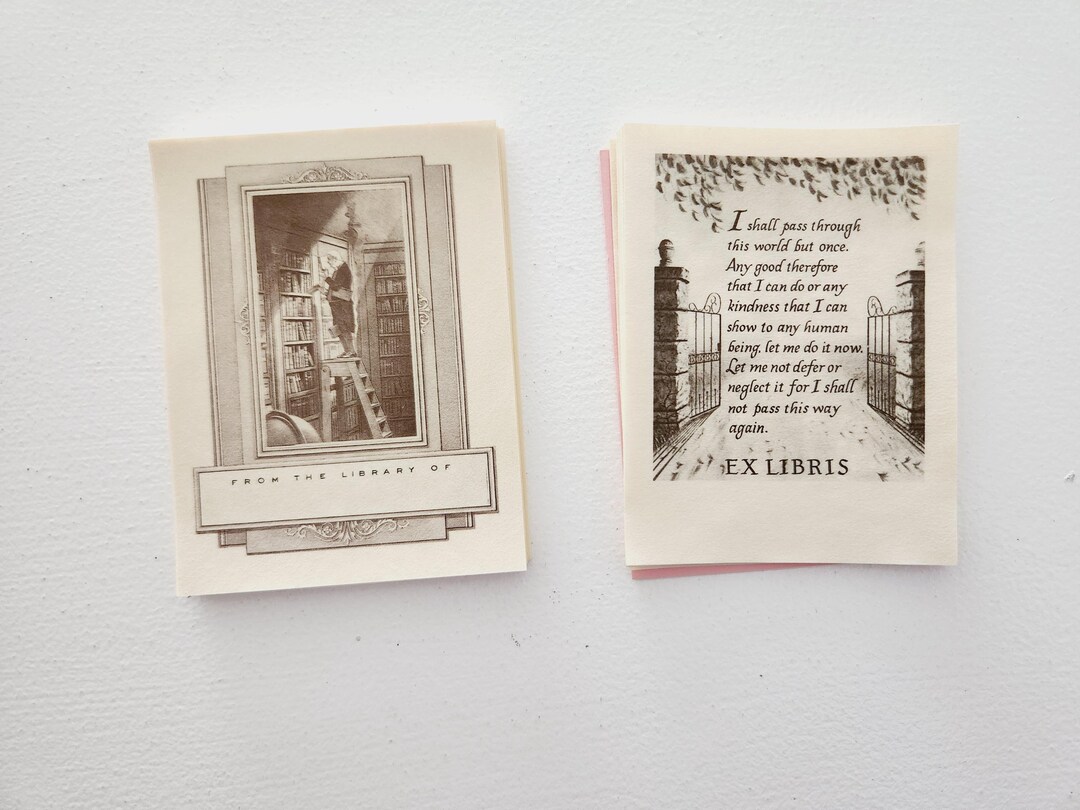 FROM THE LIBRARY OF
I shall pass through
this world but once.
Any good therefore
that I can do or any
kindness that I can
show to any human
being, let me do it now.
Let me not defer or
neglect it for I shall
not pass this way
again.
EX LIBRIS